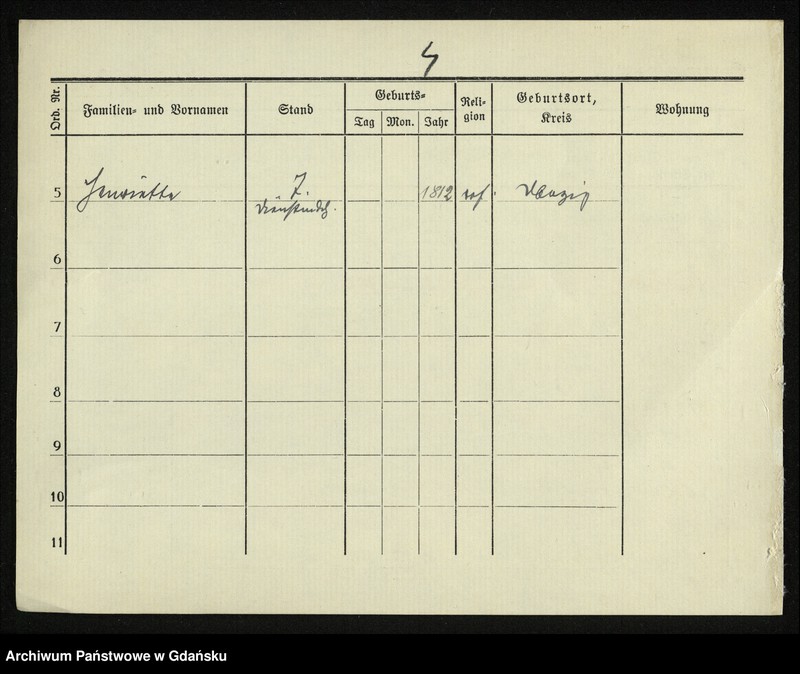 4
Ord. Nr.
Familien- und Vornamen
Stand
Geburts-
Tag
Mon.
Jahr
Reli-
gion
Geburtsort,
Kreis
Wohnung
5
Henriette
T.
Dienstmdch.
1812
ref.
Danzig
6
7
8
9
10
11
Archiwum Państwowe w Gdańsku